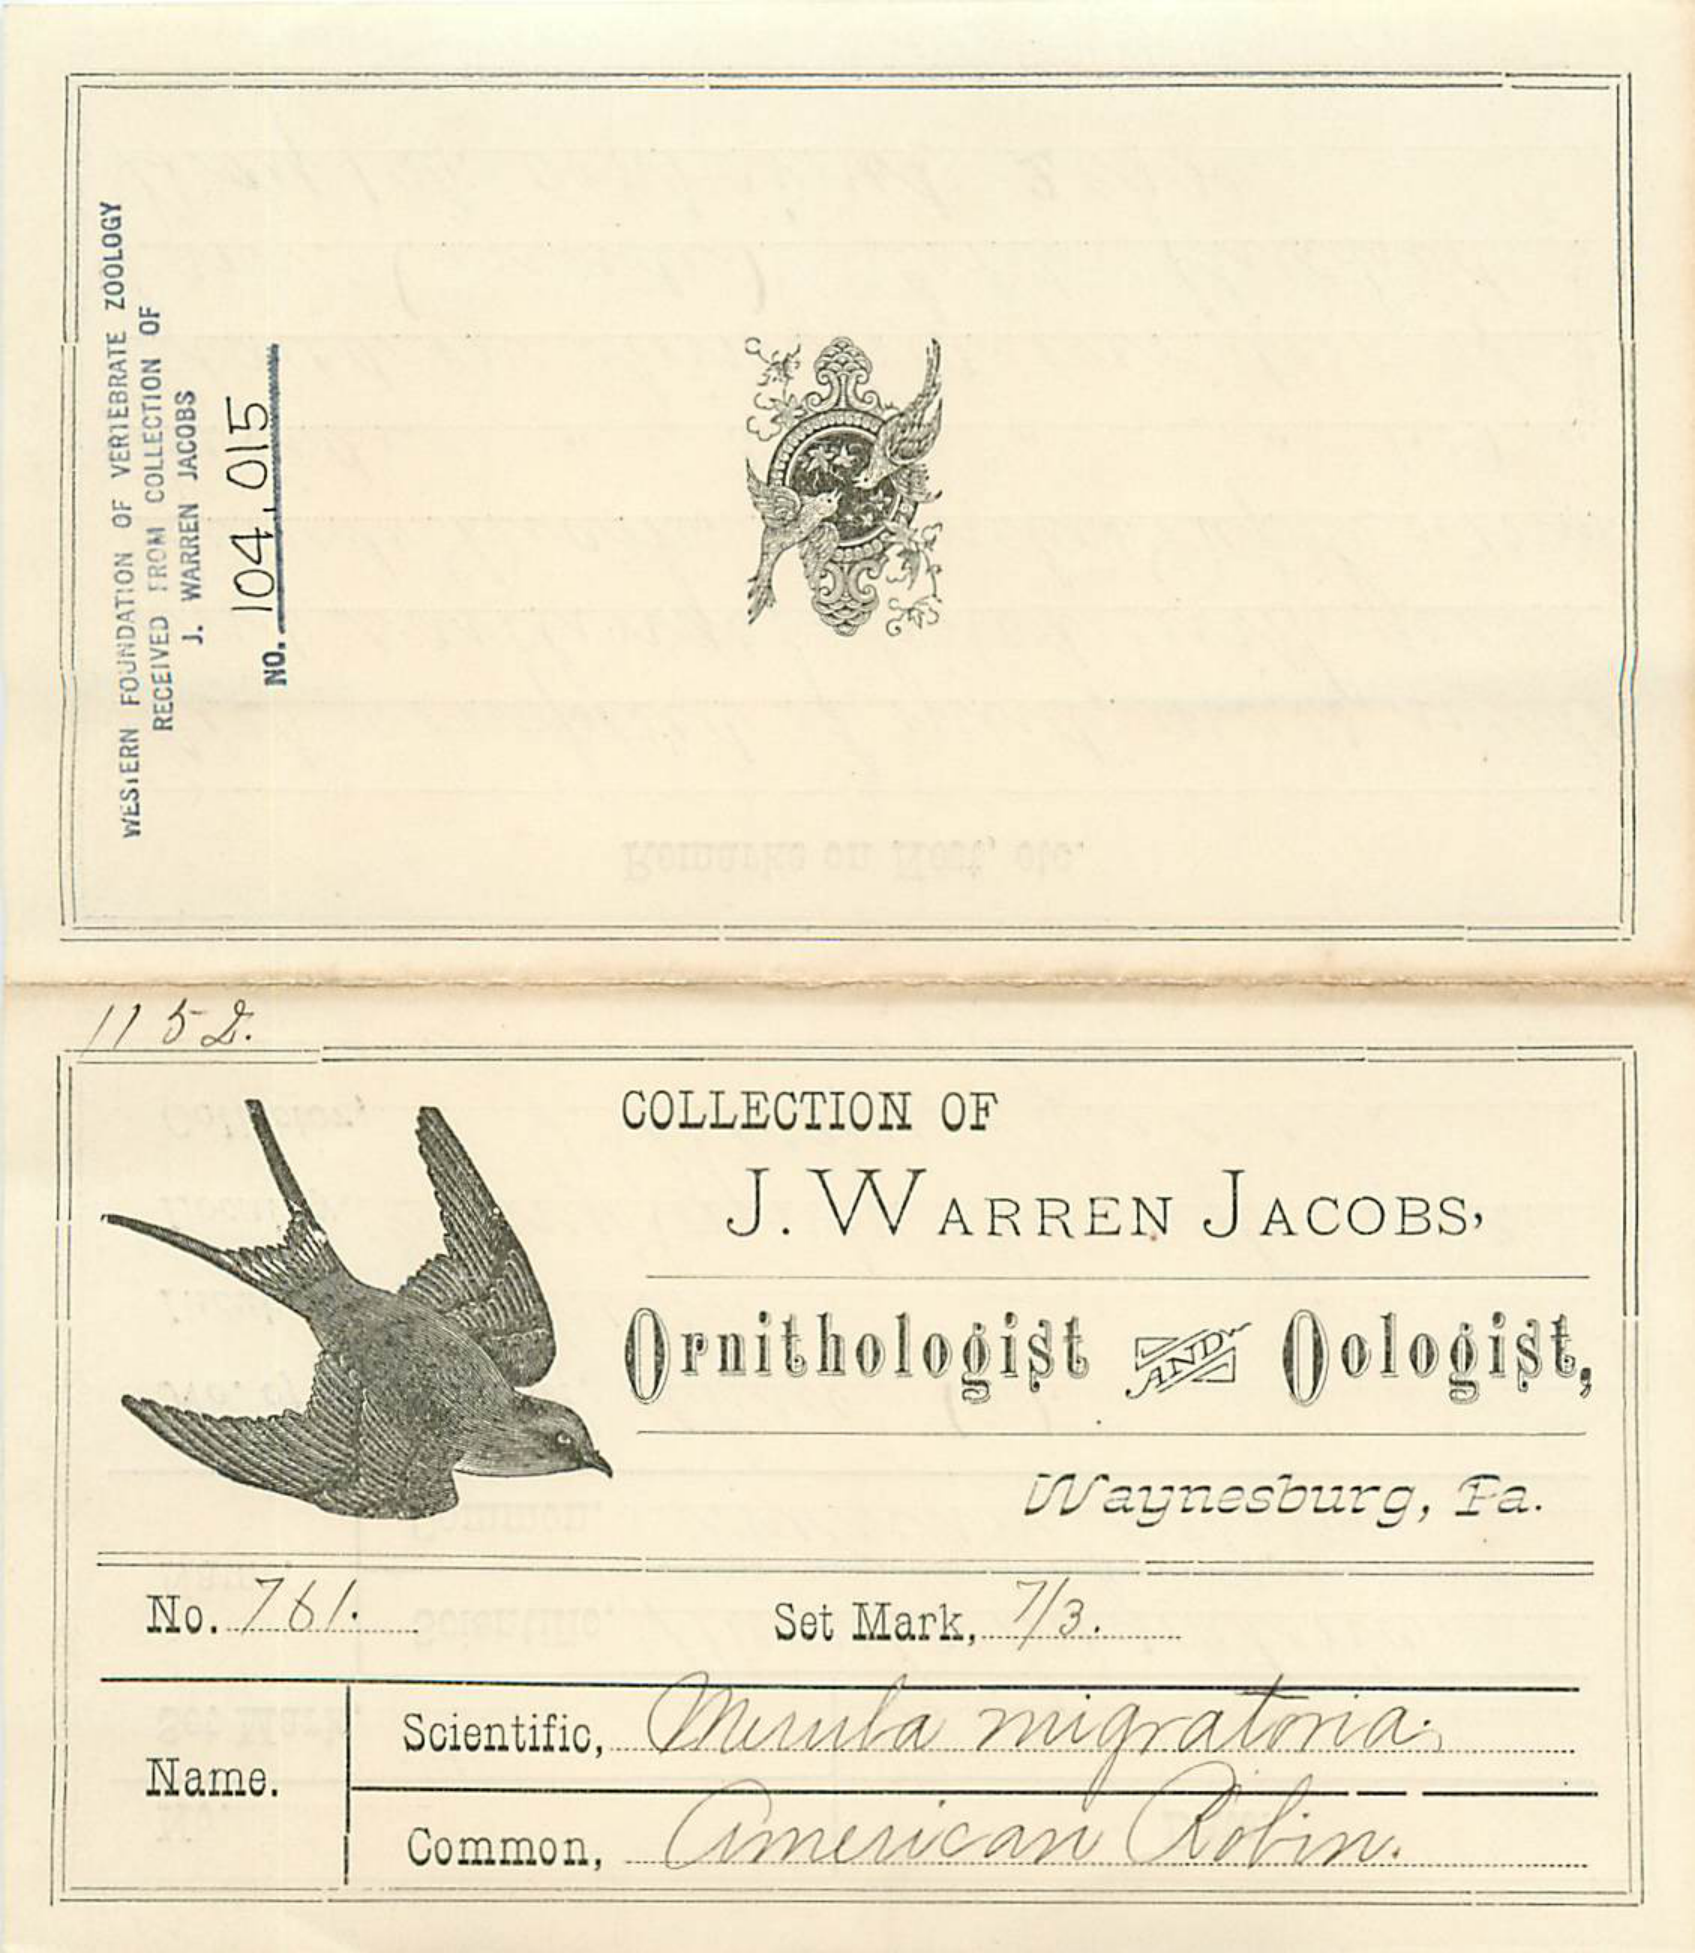 WESTERN FOUNDATION OF VERTEBRATE ZOOLOGY
RECEIVED FROM COLLECTION OF
J. WARREN JACOBS
NO. 104,015
Remarks on Nest, etc.
1152.
COLLECTION OF
J. WARREN JACOBS,
Ornithologist AND Oologist,
Waynesburg, Pa.
No. 761. Set Mark, 7/3.
Name.
Scientific, Merula migratoria.
Common, American Robin.